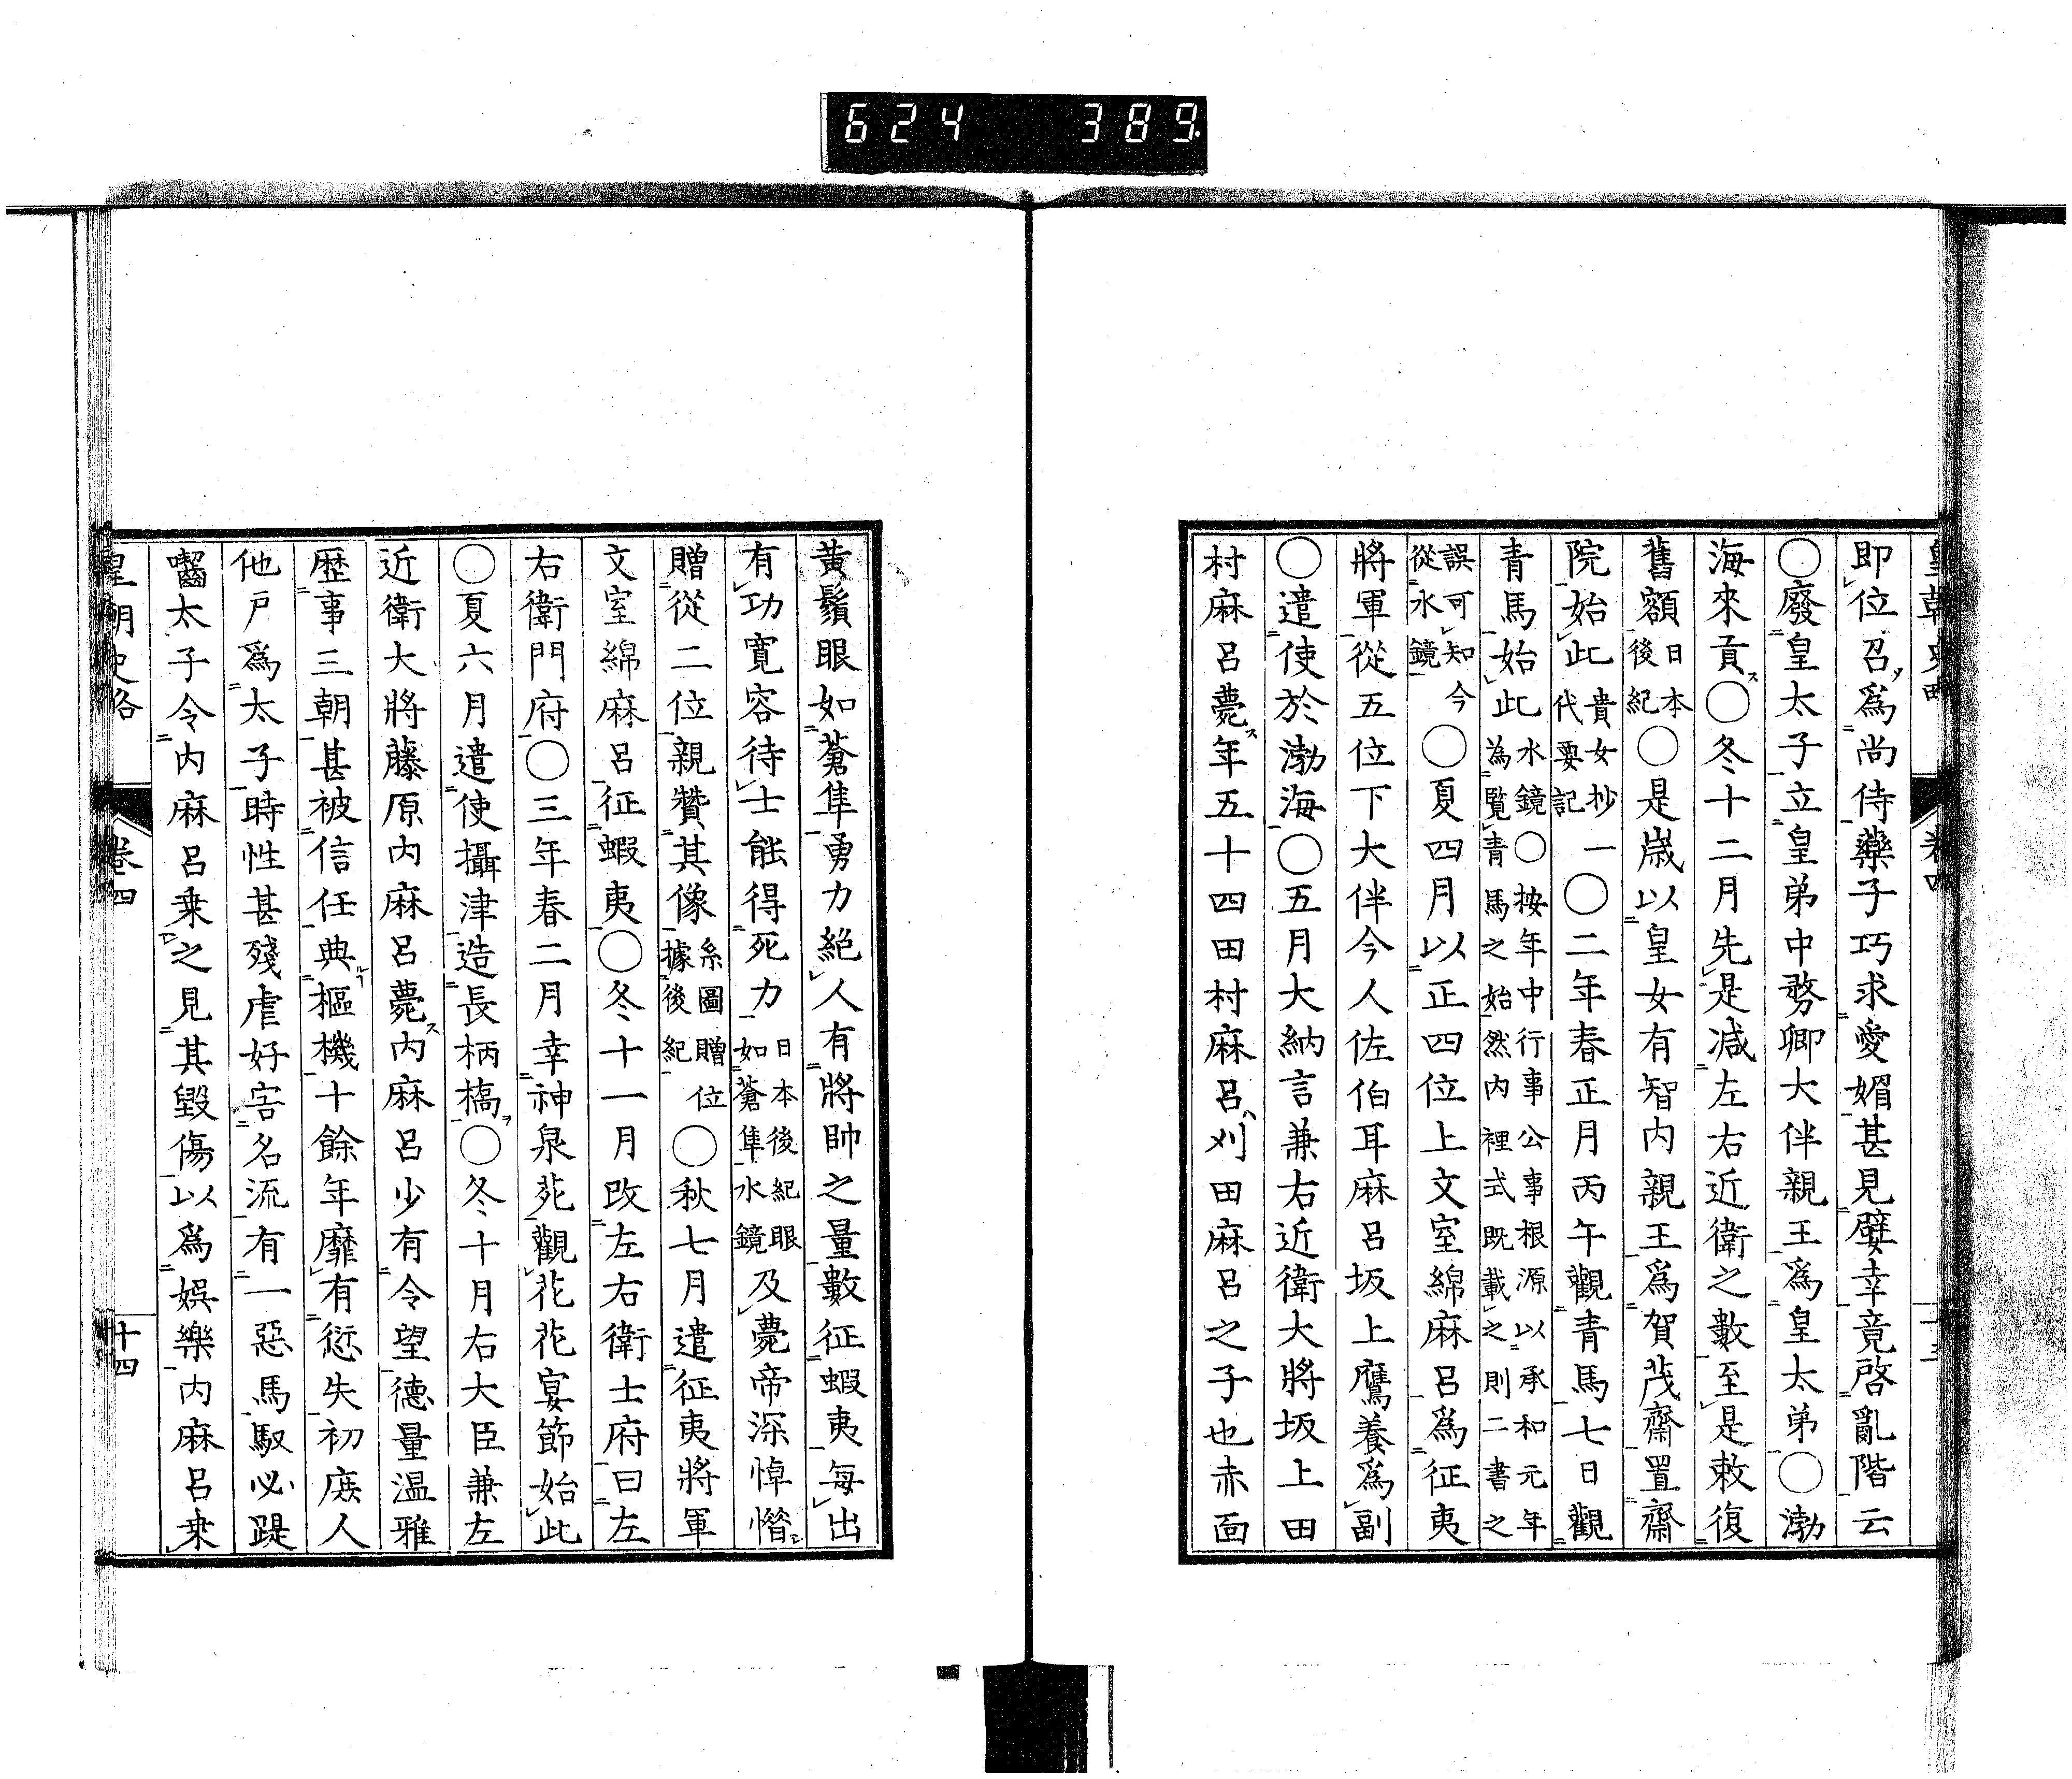 624 389
即位召爲尚侍藥子巧求愛媚甚見嬖幸竟啓亂階云
〇廢皇太子立皇弟中務卿大伴親王爲皇太弟〇渤
海來貢ス〇冬十二月先是減左右近衛之數至是敕復
舊額日本後紀〇是歳以皇女有智内親王爲賀茂齋置齋
院始此貴女抄一代要記〇二年春正月丙午觀青馬七日觀
青馬始此水鏡〇按年中行事公事根源以承和元年為覧青馬之始然内裡式既載之則二書之
誤可知今從水鏡〇夏四月以正四位上文室綿麻呂爲征夷
將軍從五位下大伴今人佐伯耳麻呂坂上鷹養爲副
〇遣使於渤海〇五月大納言兼右近衛大將坂上田
村麻呂薨ス年五十四田村麻呂ハ刈田麻呂之子也赤面
黄鬚眼如蒼隼勇力絶人有將帥之量數征蝦夷每出
有功寛容待士能得死力日本後紀眼如蒼隼水鏡及薨帝深悼惜
贈從二位親贊其像系圖贈位據後紀〇秋七月遣征夷將軍
文室綿麻呂征蝦夷〇冬十一月改左右衛士府曰左
右衛門府〇三年春二月幸神泉苑觀花花宴節始此
〇夏六月遣使攝津造長柄橋ヲ〇冬十月右大臣兼左
近衛大將藤原内麻呂薨ス内麻呂少有令望德量温雅
歴事三朝甚被信任典樞機十餘年靡有愆失初廢人
他戸爲太子時性甚殘虐好害名流有一惡馬馭必踶
囓太子令内麻呂乗之見其毀傷以爲娯樂内麻呂乗
皇朝史略
卷四
十四